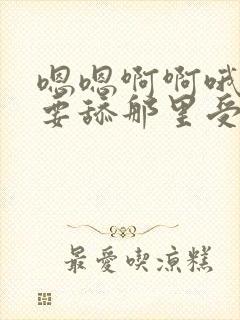 嗯嗯啊啊哦
要舔那里受
最愛喫涼糕